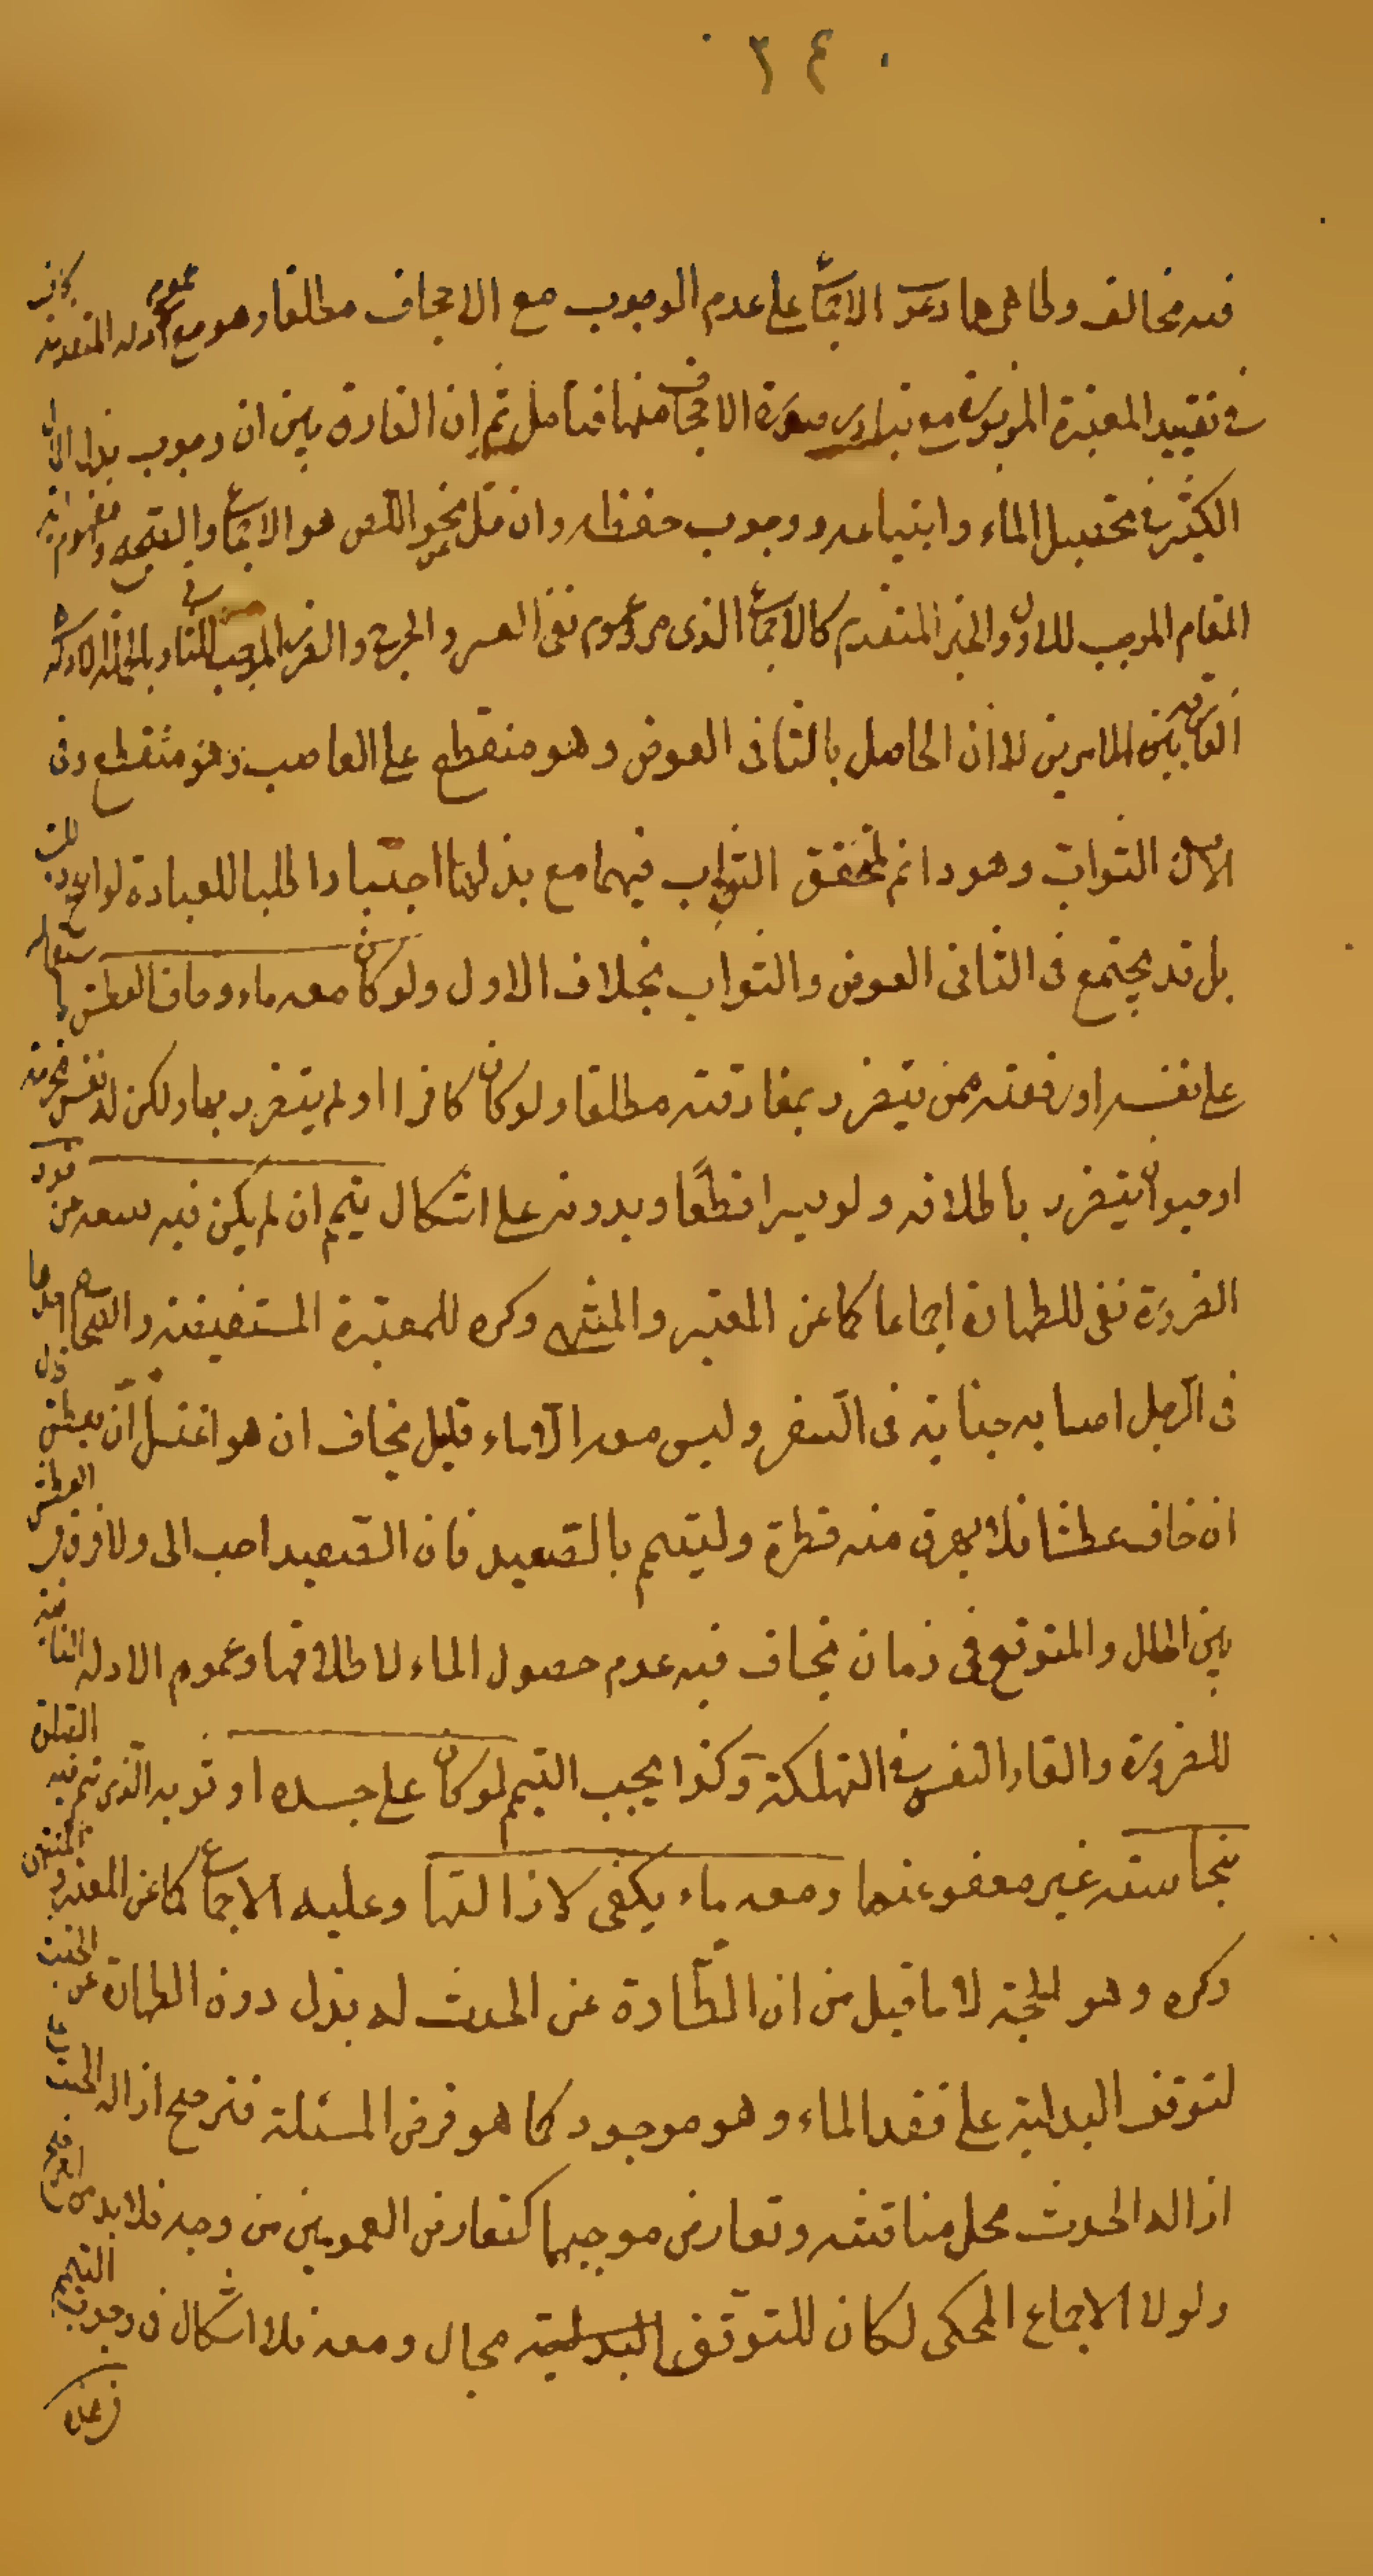 ٣٤٠
فيه مخالف وظاهرها دعوى الاجماع على عدم الوجوب مع الاجحاف مطلقا وهو مع عموم الادلة المتقدمة كاف
في تقييد المعتبرة المزبورة مع تبادر صورة الاجحاف منها فتامل ثم ان الفارق بين ان وجوب بذل المال
الكثير في تحصيل الماء وابتياعه ووجوب حفظه وان قل نحو اللص هو الاجماع والصحيح ومفهوم
المقام الموجب للاول والخبر المتقدم كالاجماع الذي مر وعموم نفي العسر والحرج والضرر الموجب للثاني
الفارقة بين الامرين لا ان الحاصل بالثاني العوض وهو منقطع على الغاصب وهو منقطع وفي
الاول الثواب وهو دائم لتحقق الثواب فيهما مع بذلهما اختيارا طلبا للعبادة لو ابيح ذلك
بل قد يجتمع في الثاني العوض والثواب بخلاف الاول ولو كان معه ماء وخاف العطش باستعماله
على نفسه او رفقته ممن يتضرر بمفارقته مطلقا ولو كان كافرا او لم يتضرر بها ولكن له نفس محترمة
او حيوان يتضرر باتلافه ولو يسيرا قطعا وبدونه على اشكال يتيمم ان لم يكن فيه سعة عن قدر
الضرورة نفى للطهارة اجماعا كما عن المعتبر والمنتهى وكره للمعتبرة المستفيضة والصحاح احدها
في الرجل اصابه جنابة في السفر وليس معه الا ماء قليل يخاف ان هو اغتسل ان يعطش قال
ان خاف عطشا فلا يهرق منه قطرة وليتيمم بالصعيد فان الصعيد احب الى ولا فرق في العطش
بين الحال والمتوقع في زمان يخاف فيه عدم حصول الماء لاطلاقها وعموم الادلة النافية
للضرورة والقاء النفس في التهلكة وكذا يجب التيمم لو كان على جسده او ثوبه الذي يتم فيه الصلوة
نجاسة غير معفو عنها ومعه ماء يكفي لازالتها وعليه الاجماع كما عن المعتبر والمنتهى
وكره وهو الحجة لا ما قيل من ان الطهارة عن الحدث له بدل دون الطهارة عن الخبث
لتوقف البدلية على فقد الماء وهو موجود كما هو فرض المسئلة فترجيح ازالة الخبث على
ازالة الحدث محل مناقشة وتعارض موجبهما كتعارض العمومين من وجه فلا بد من المرجح
ولولا الاجماع المحكى لكان للتوقف البدلية مجال ومعه فلا اشكال في وجوب التيمم